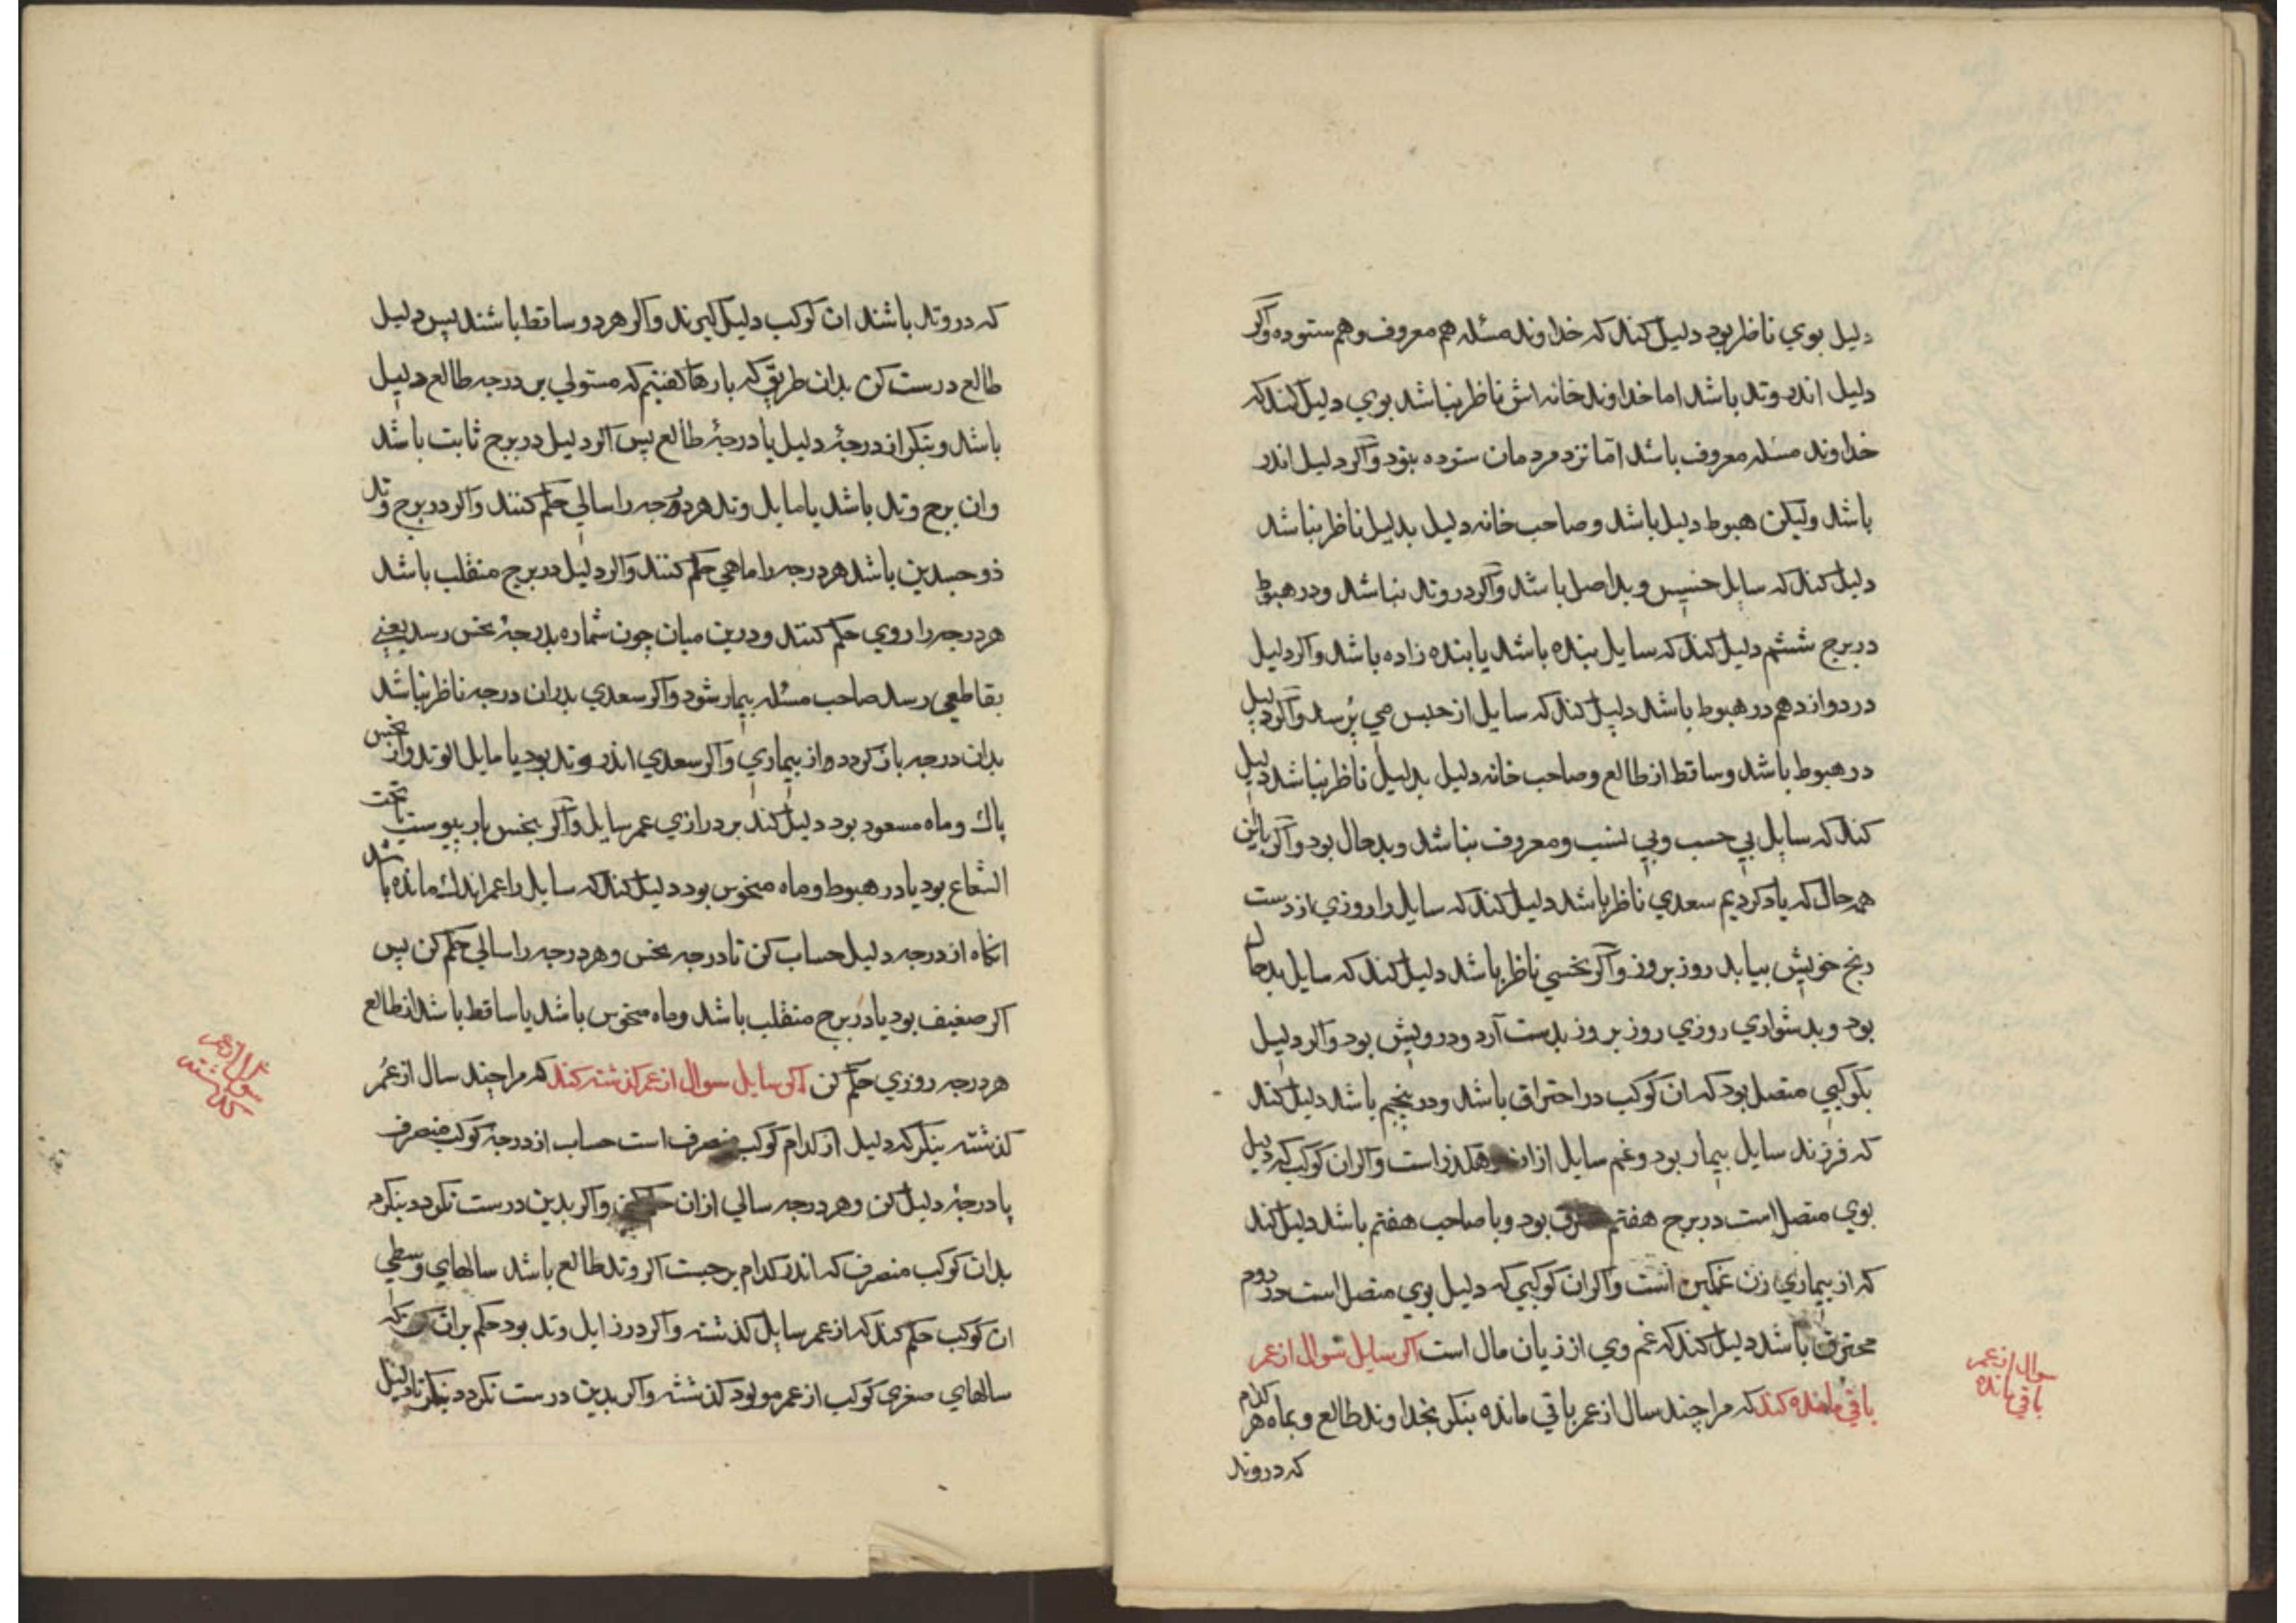 دليل بوي ناظر بود دليل كند كه خداوند مسئله هم معروف وهم ستوده واكر
دليل اندر وتد باشد اما خداوند خانه اش ناظر نباشد بوي دليل كند كه
خداوند مسئله معروف باشد اما نزد مردمان ستوده نبود واكر دليل اندر
باشد وليكن هبوط دليل باشد وصاحب خانه دليل بدليل ناظر نباشد
دليل كند كه سايل خسيس وبد اصل باشد واكر در وتد نباشد ودر هبوط
در برج ششم دليل كند كه سايل بنده باشد يا بنده زاده باشد واكر دليل
در دوازدهم در هبوط باشد دليل كند كه سايل از حبس مي پرسد واكر دليل
در هبوط باشد وساقط از طالع وصاحب خانه دليل بدليل ناظر نباشد دليل
كند كه سايل بي حسب وبي نسب ومعروف نباشد وبد حال بود واكر با اين
همه حال كه ياد كرديم سعدي ناظر باشد دليل كند كه سايل را روزي از دست
رنج خويش بيابد روز بروز واكر نحسي ناظر باشد دليل كند كه سايل بد حال
بود وبدشواري روزي روز بروز بدست آرد ودرويش بود واكر دليل
بكوكبي متصل بود كه ان كوكب در احتراق باشد ودر پنجم باشد دليل كند
كه فرزند سايل بيمار بود وغم سايل از ان است واكر ان كوكب كه دليل
بوي متصل است در برج هفتم بود وبا صاحب هفتم باشد دليل كند
كه از بيماري زن غمكين است واكر ان كوكبي كه دليل بوي متصل است در دوم
محترق باشد دليل كند كه غم وي از زيان مال است اكر سايل سوال از عمر
باقي مانده كند كه مرا چند سال از عمر باقي مانده بنكر بخداوند طالع وبماه هر كدام
كه در وتد
سوال از عمر
باقي مانده
كه در وتد باشند ان كوكب دليل كيرند واكر هر دو ساقط باشند پس دليل
طالع درست كن بدان طريق كه بارها كفتيم كه مستولي بر درجه طالع دليل
باشد وبنكر از درجۀ دليل يا درجۀ طالع پس اكر دليل در برج ثابت باشد
وان برج وتد باشد يا مايل وتد هر درجه را سالي حكم كنند واكر در برج وتد
ذو جسدين باشد هر درجه را ماهي حكم كنند واكر دليل در برج منقلب باشد
هر درجه را روي حكم كنند ودرين ميان چون شماره بدرجۀ نحس رسد يعني
بقاطعي رسد صاحب مسئله بيمار شود واكر سعدي بدان درجه ناظر نباشد
بدان درجه باز كردد واز بيماري واكر سعدي اندر وتد بود يا مايل الوتد واز نحس
پاك وماه مسعود بود دليل كند بر درازي عمر سايل واكر بنحس بار پيوست تحت
الشعاع بود يا در هبوط وماه منحوس بود دليل كند كه سايل را عمر اندك مانده باشد
انكاه از درجه دليل حساب كن تا درجه نحس وهر درجه را سالي حكم كن پس
اكر ضعيف بود يا در برج منقلب باشد وماه منحوس باشد يا ساقط باشد از طالع
هر درجه روزي حكم كن اكر سايل سوال از عمر كذشته كند كه مرا چند سال از عمر
كذشته بنكر كه دليل از كدام كوكب منصرف است حساب از درجۀ كوكب منصرف
يا درجۀ دليل كن وهر درجه سالي از ان واكر بدين درست نكردد بنكرد
بدان كوكب منصرف كه اندر كدام برجست اكر وتد طالع باشد سالهاي وسطي
ان كوكب حكم كند كه از عمر سايل كذشته واكر در زايل وتد بود حكم بران كن كه
سالهاي صغري كوكب از عمر مولود كذشته واكر بدين درست نكردد بنكر تا دليل
سوال از عمر
كذشته